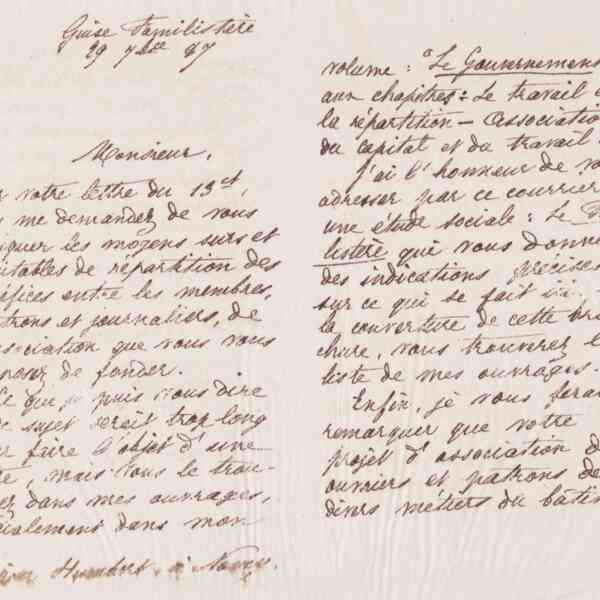 Guise Familistère
29 7bre 87
Monsieur,
votre lettre du 13ct,
me demandez de vous
iquer les moyens surs et
itables de répartition des
éfices entre les membres,
trons et journaliers, de
sociation que vous vous
posez de fonder.
Ce que je puis vous dire
ce sujet serait trop long
r faire l'objet d'une
, mais vous le trou-
ez dans mes ouvrages,
cialement dans mon
Humbert, à Nancy.
volume : "Le Gouvernement
aux chapitres : Le travail
la répartition — Association
du capital et du travail
J'ai l'honneur de vo
adresser par ce courrier
une étude sociale : Le
listère qui vous donne
des indications précises
sur ce qui se fait ici.
la couverture de cette bro
chure, vous trouverez l
liste de mes ouvrages.
Enfin, je vous ferai
remarquer que votre
projet d'association d
ouvriers et patrons de
divers métiers du bâtim